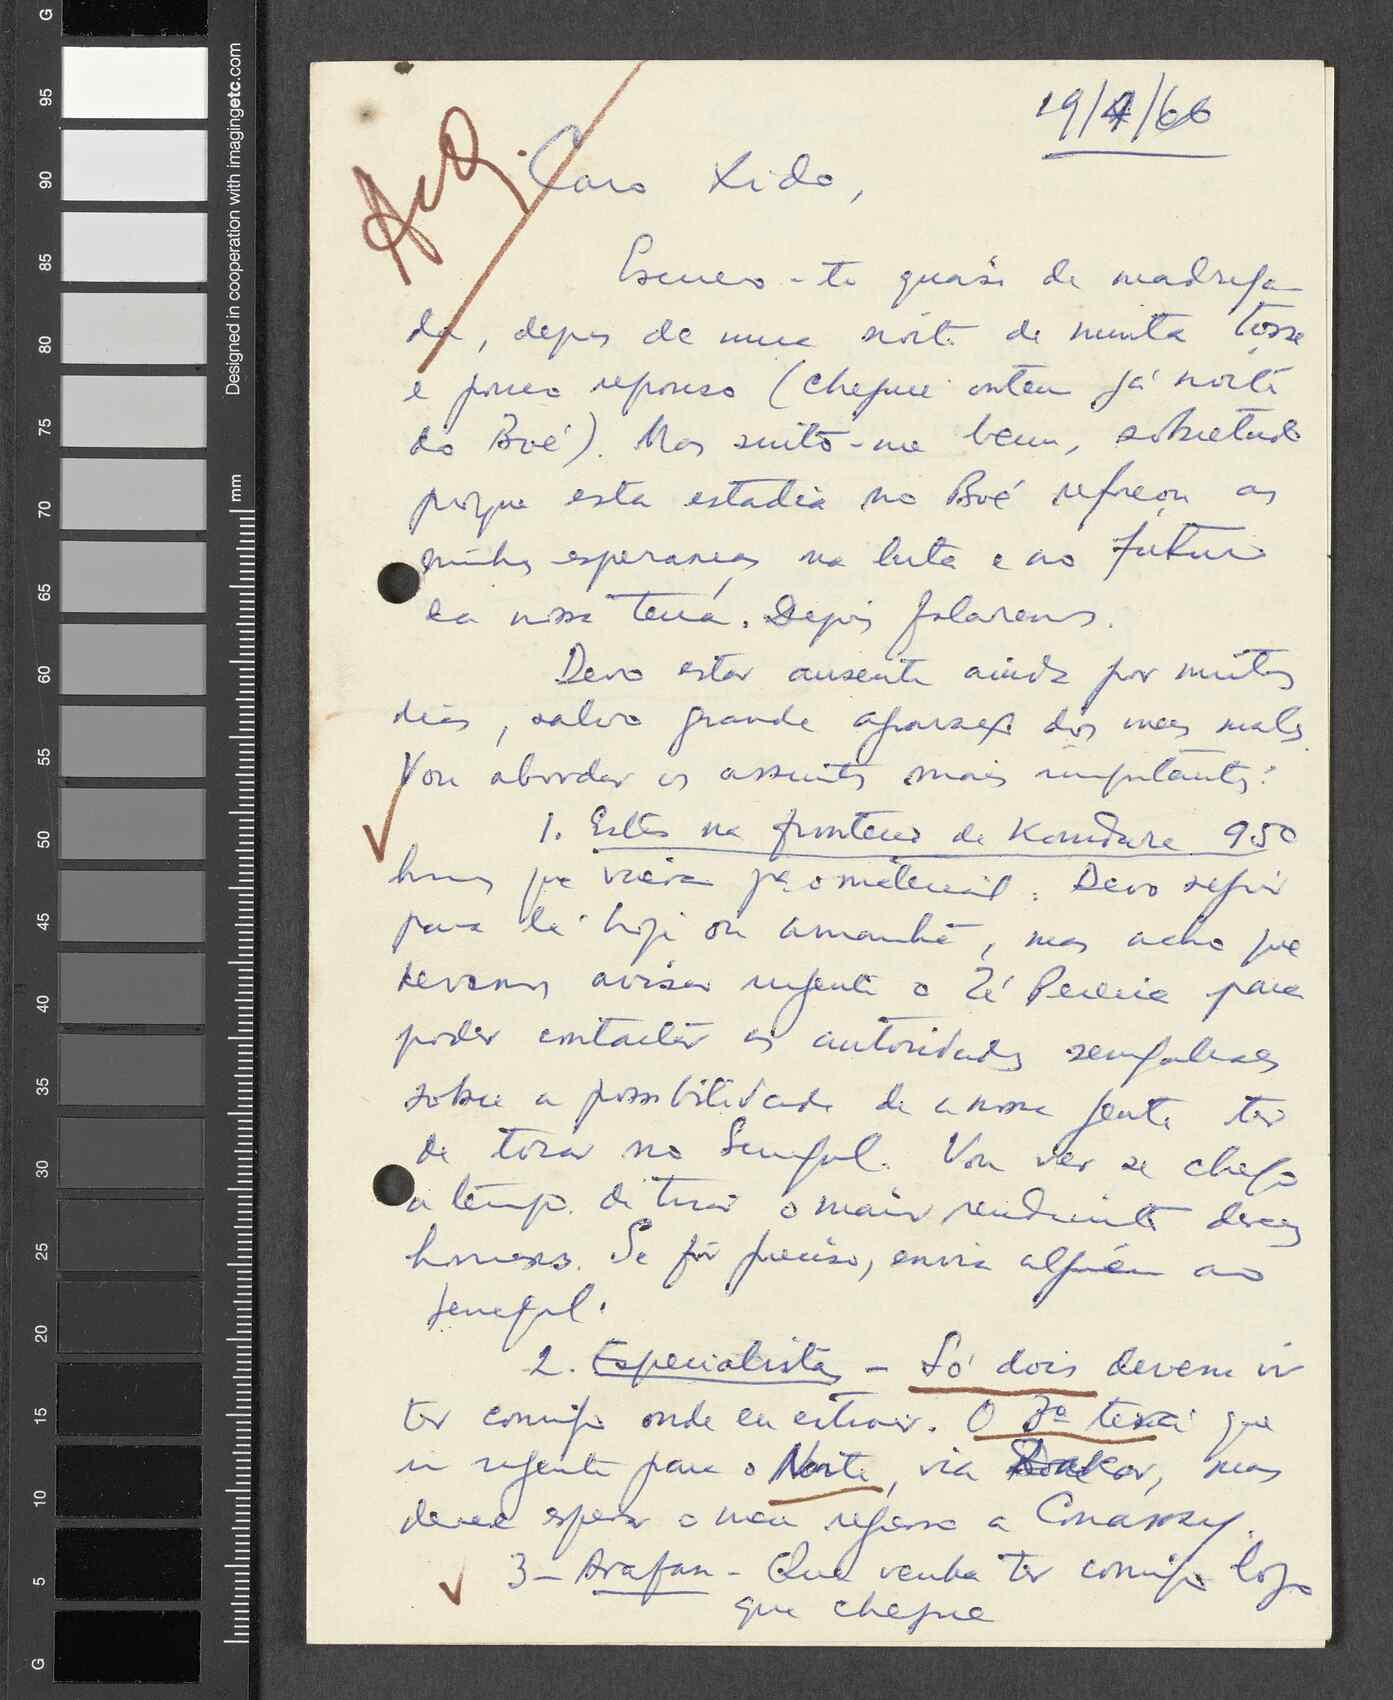 19/4/66
Arq.
Caro Xido,
Escrevo-te quási de madruga
da, depois de uma noite de muita tosse
e pouco repouso (cheguei ontem já noite
do Boé). Mas sinto-me bem, sobretudo
porque esta estadia no Boé reforçou as
minhas esperanças na luta e no futuro
da nossa terra. Depois falaremos.
Devo estar ausente ainda por muitos
dias, salvo grande dos meus males.
Vou abordar os assuntos mais importantes:
1. Estão na fronteira de Koundara 950
homens que vieram pa o material. Devo seguir
para lá hoje ou amanhã, mas acho que
devemos avisar urgente o Zé Pereira para
poder contactar as autoridades senegalesas
sobre a possibilidade de a nossa gente ter
de tocar no Senegal. Vou ver se chego
a tempo de tirar o maior rendimento desses
homens. Se fôr preciso, envia alguém ao
Senegal.
2. Especialistas - Só dois devem vir
ter comigo onde eu estiver. O 3º terá que
ir urgente para o Norte, via Dakar, mas
deve esperar o meu regresso a Conakry.
3 - Arafan - Que venha ter comigo logo
que chegue
Designed in cooperation with imagingetc.com
mm
G
95
90
85
80
75
70
65
60
55
50
45
40
35
30
25
20
15
10
5
G